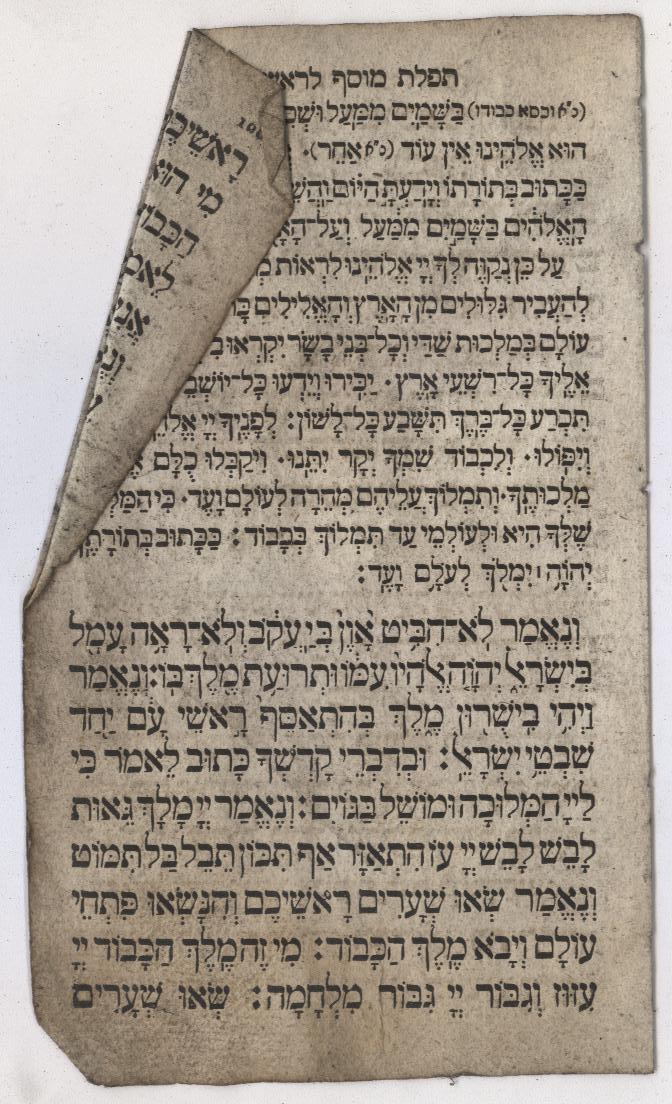 תפלת מוסף לראש
(נ״א וכסא כבודו) בַּשָּׁמַיִם מִמַּעַל וּשְׁכִ
הוּא אֱלֹהֵינוּ אֵין עוֹד (נ״א אַחֵר).
כַּכָּתוּב בְּתוֹרָתוֹ וְיָדַעְתָּ הַיּוֹם וַהֲשֵׁ
הָאֱלֹהִים בַּשָּׁמַיִם מִמַּעַל וְעַל־הָאָ
עַל כֵּן נְקַוֶּה לְךָ יְיָ אֱלֹהֵינוּ לִרְאוֹת מְ
לְהַעֲבִיר גִּלּוּלִים מִן הָאָרֶץ וְהָאֱלִילִים כָּ
עוֹלָם בְּמַלְכוּת שַׁדַּי וְכָל־בְּנֵי בָשָׂר יִקְרְאוּ בִ
אֵלֶיךָ כָּל־רִשְׁעֵי אָרֶץ. יַכִּירוּ וְיֵדְעוּ כָּל־יוֹשְׁבֵ
תִּכְרַע כָּל־בֶּרֶךְ תִּשָּׁבַע כָּל־לָשׁוֹן: לְפָנֶיךָ יְיָ אֱלֹהֵ
וְיִפּוֹלוּ. וְלִכְבוֹד שִׁמְךָ יְקָר יִתֵּנוּ. וִיקַבְּלוּ כֻלָּם
מַלְכוּתֶךָ. וְתִמְלוֹךְ עֲלֵיהֶם מְהֵרָה לְעוֹלָם וָעֶד. כִּי הַמַּלְ
שֶׁלְּךָ הִיא וּלְעוֹלְמֵי עַד תִּמְלוֹךְ בְּכָבוֹד: כַּכָּתוּב בְּתוֹרָתֶךָ
יְהוָֹה יִמְלֹךְ לְעֹלָם וָעֶד:
וְנֶאֱמַר לֹא־הִבִּיט אָוֶן בְּיַעֲקֹב וְלֹא־רָאָה עָמָל
בְּיִשְׂרָאֵל יְהוָֹה אֱלֹהָיו עִמּוֹ וּתְרוּעַת מֶלֶךְ בּוֹ: וְנֶאֱמַר
וַיְהִי בִישֻׁרוּן מֶלֶךְ בְּהִתְאַסֵּף רָאשֵׁי עָם יַחַד
שִׁבְטֵי יִשְׂרָאֵל: וּבְדִבְרֵי קָדְשְׁךָ כָּתוּב לֵאמֹר כִּי
לַיְיָ הַמְּלוּכָה וּמוֹשֵׁל בַּגּוֹיִם: וְנֶאֱמַר יְיָ מָלָךְ גֵּאוּת
לָבֵשׁ לָבֵשׁ יְיָ עֹז הִתְאַזָּר אַף תִּכּוֹן תֵּבֵל בַּל תִּמּוֹט
וְנֶאֱמַר שְׂאוּ שְׁעָרִים רָאשֵׁיכֶם וְהִנָּשְׂאוּ פִּתְחֵי
עוֹלָם וְיָבֹא מֶלֶךְ הַכָּבוֹד: מִי זֶה מֶלֶךְ הַכָּבוֹד יְיָ
עִזּוּז וְגִבּוֹר יְיָ גִּבּוֹר מִלְחָמָה: שְׂאוּ שְׁעָרִים
רָאשֵׁיכֶ
מִי הוּא
הַכָּבוֹ